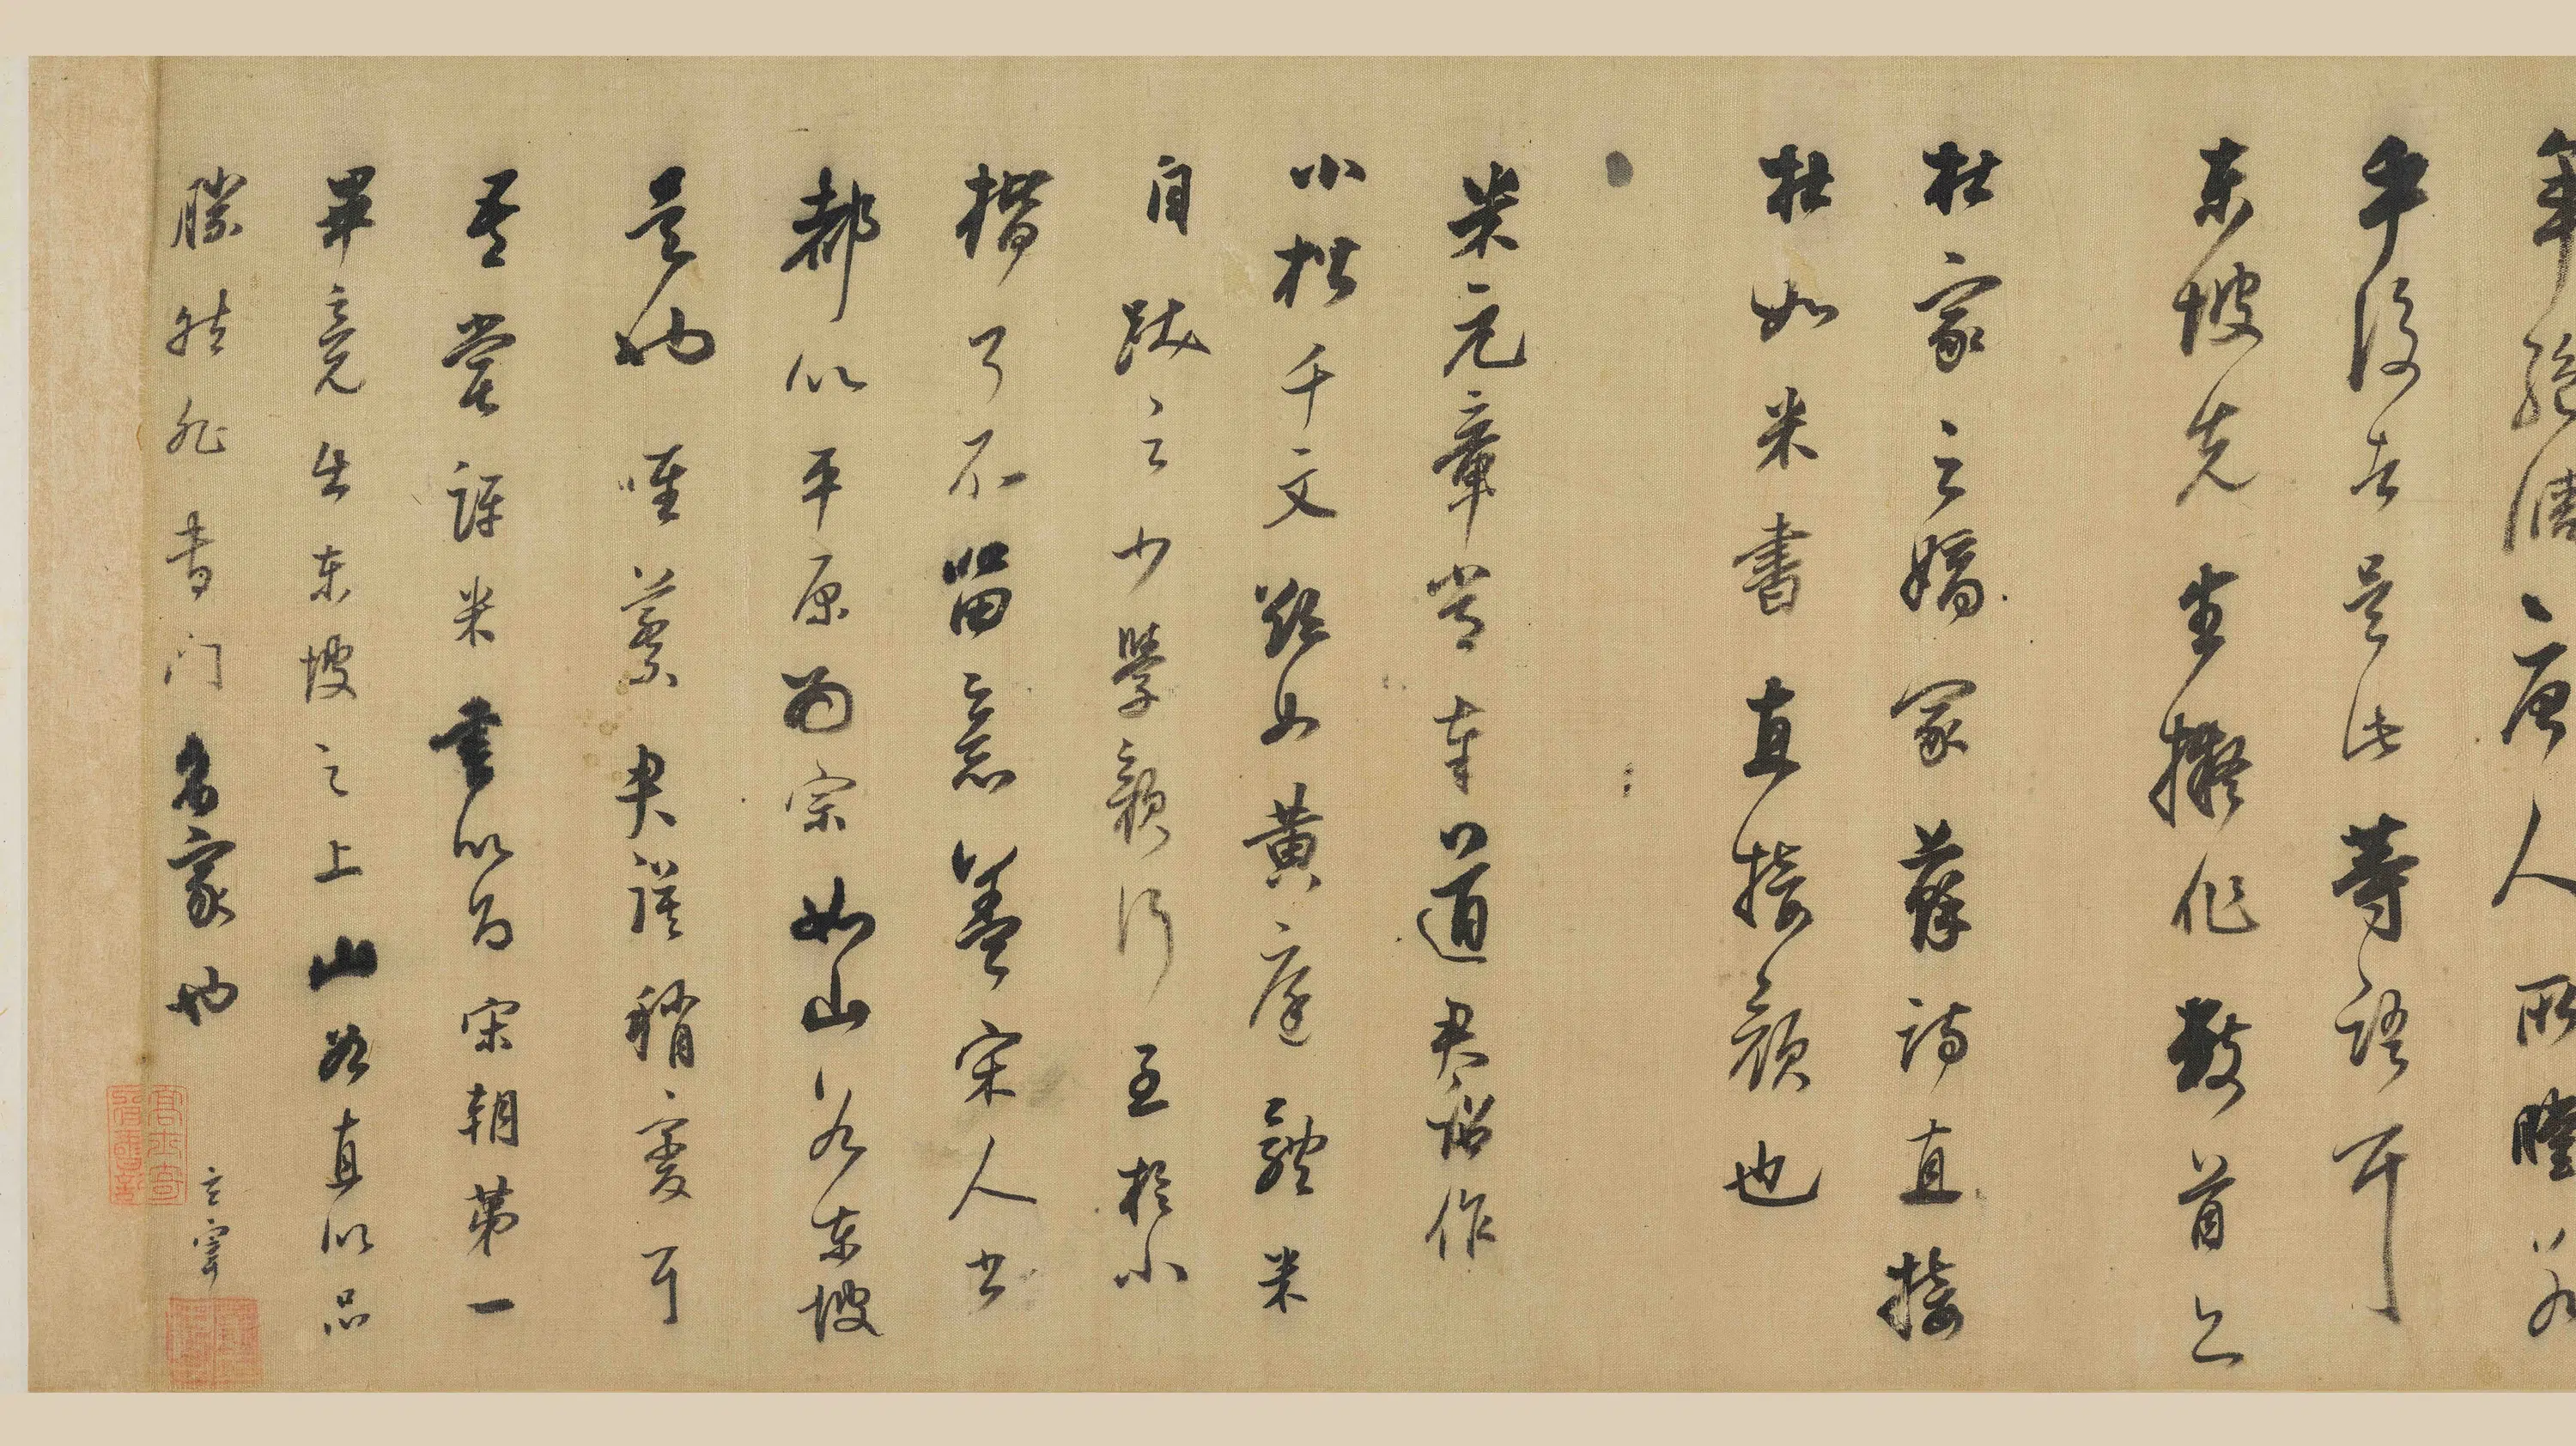 年経濟、唐人所膾若
手段者是此等語耳
東坡先生擬作數首亡
杜家之嫡冢蘇詩直接
杜如米書直接顏也
米元章嘗奉道君詔作
小楷千文欲如黃庭體米
自跋之少學顏行至於小
楷了不留意蓋宋人書
都以平原為宗如山谷東坡
是也唯蔡君謨稍變耳
吾嘗評米書以為宋朝第一
畢竟出東坡之上山谷直以品
勝然非書門名家也
玄宰